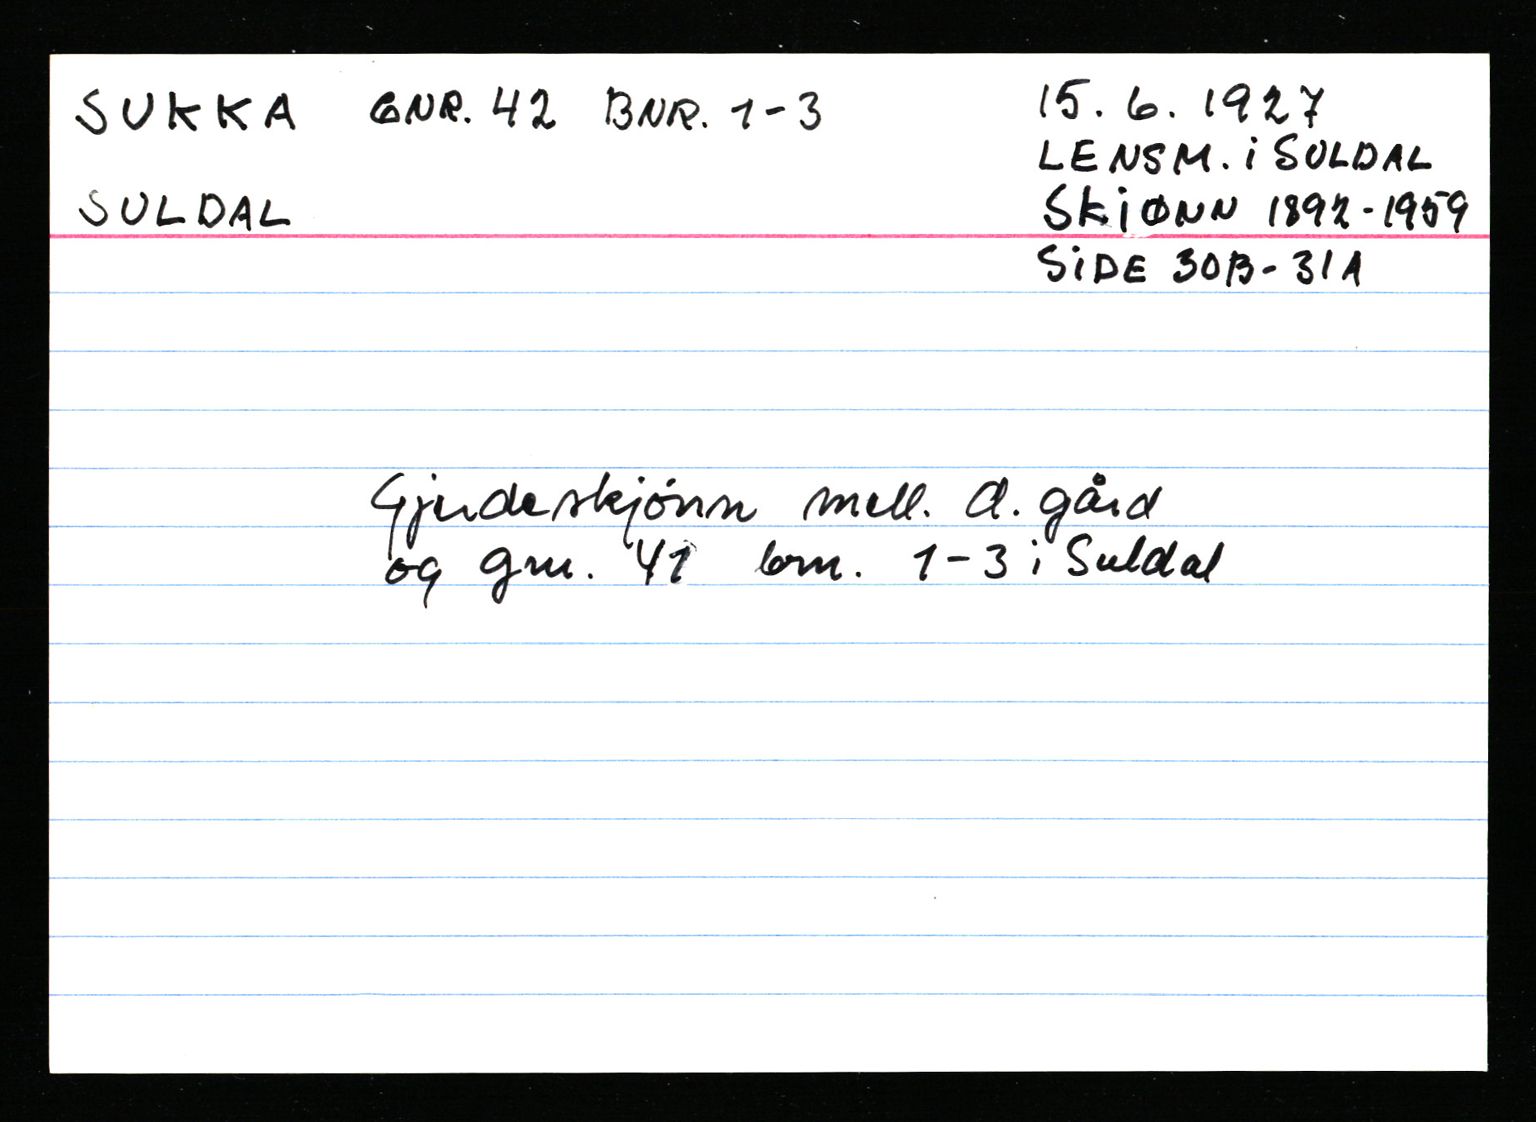 SUKKA GNR. 42 BNR. 1-3
SULDAL
15. 6. 1927
LENSM. i SULDAL
SKJØNN 1892-1959
SIDE 30B-31A
Gjerdeskjønn mell. d. gård
og gnr. 41 bnr. 1-3 i Suldal